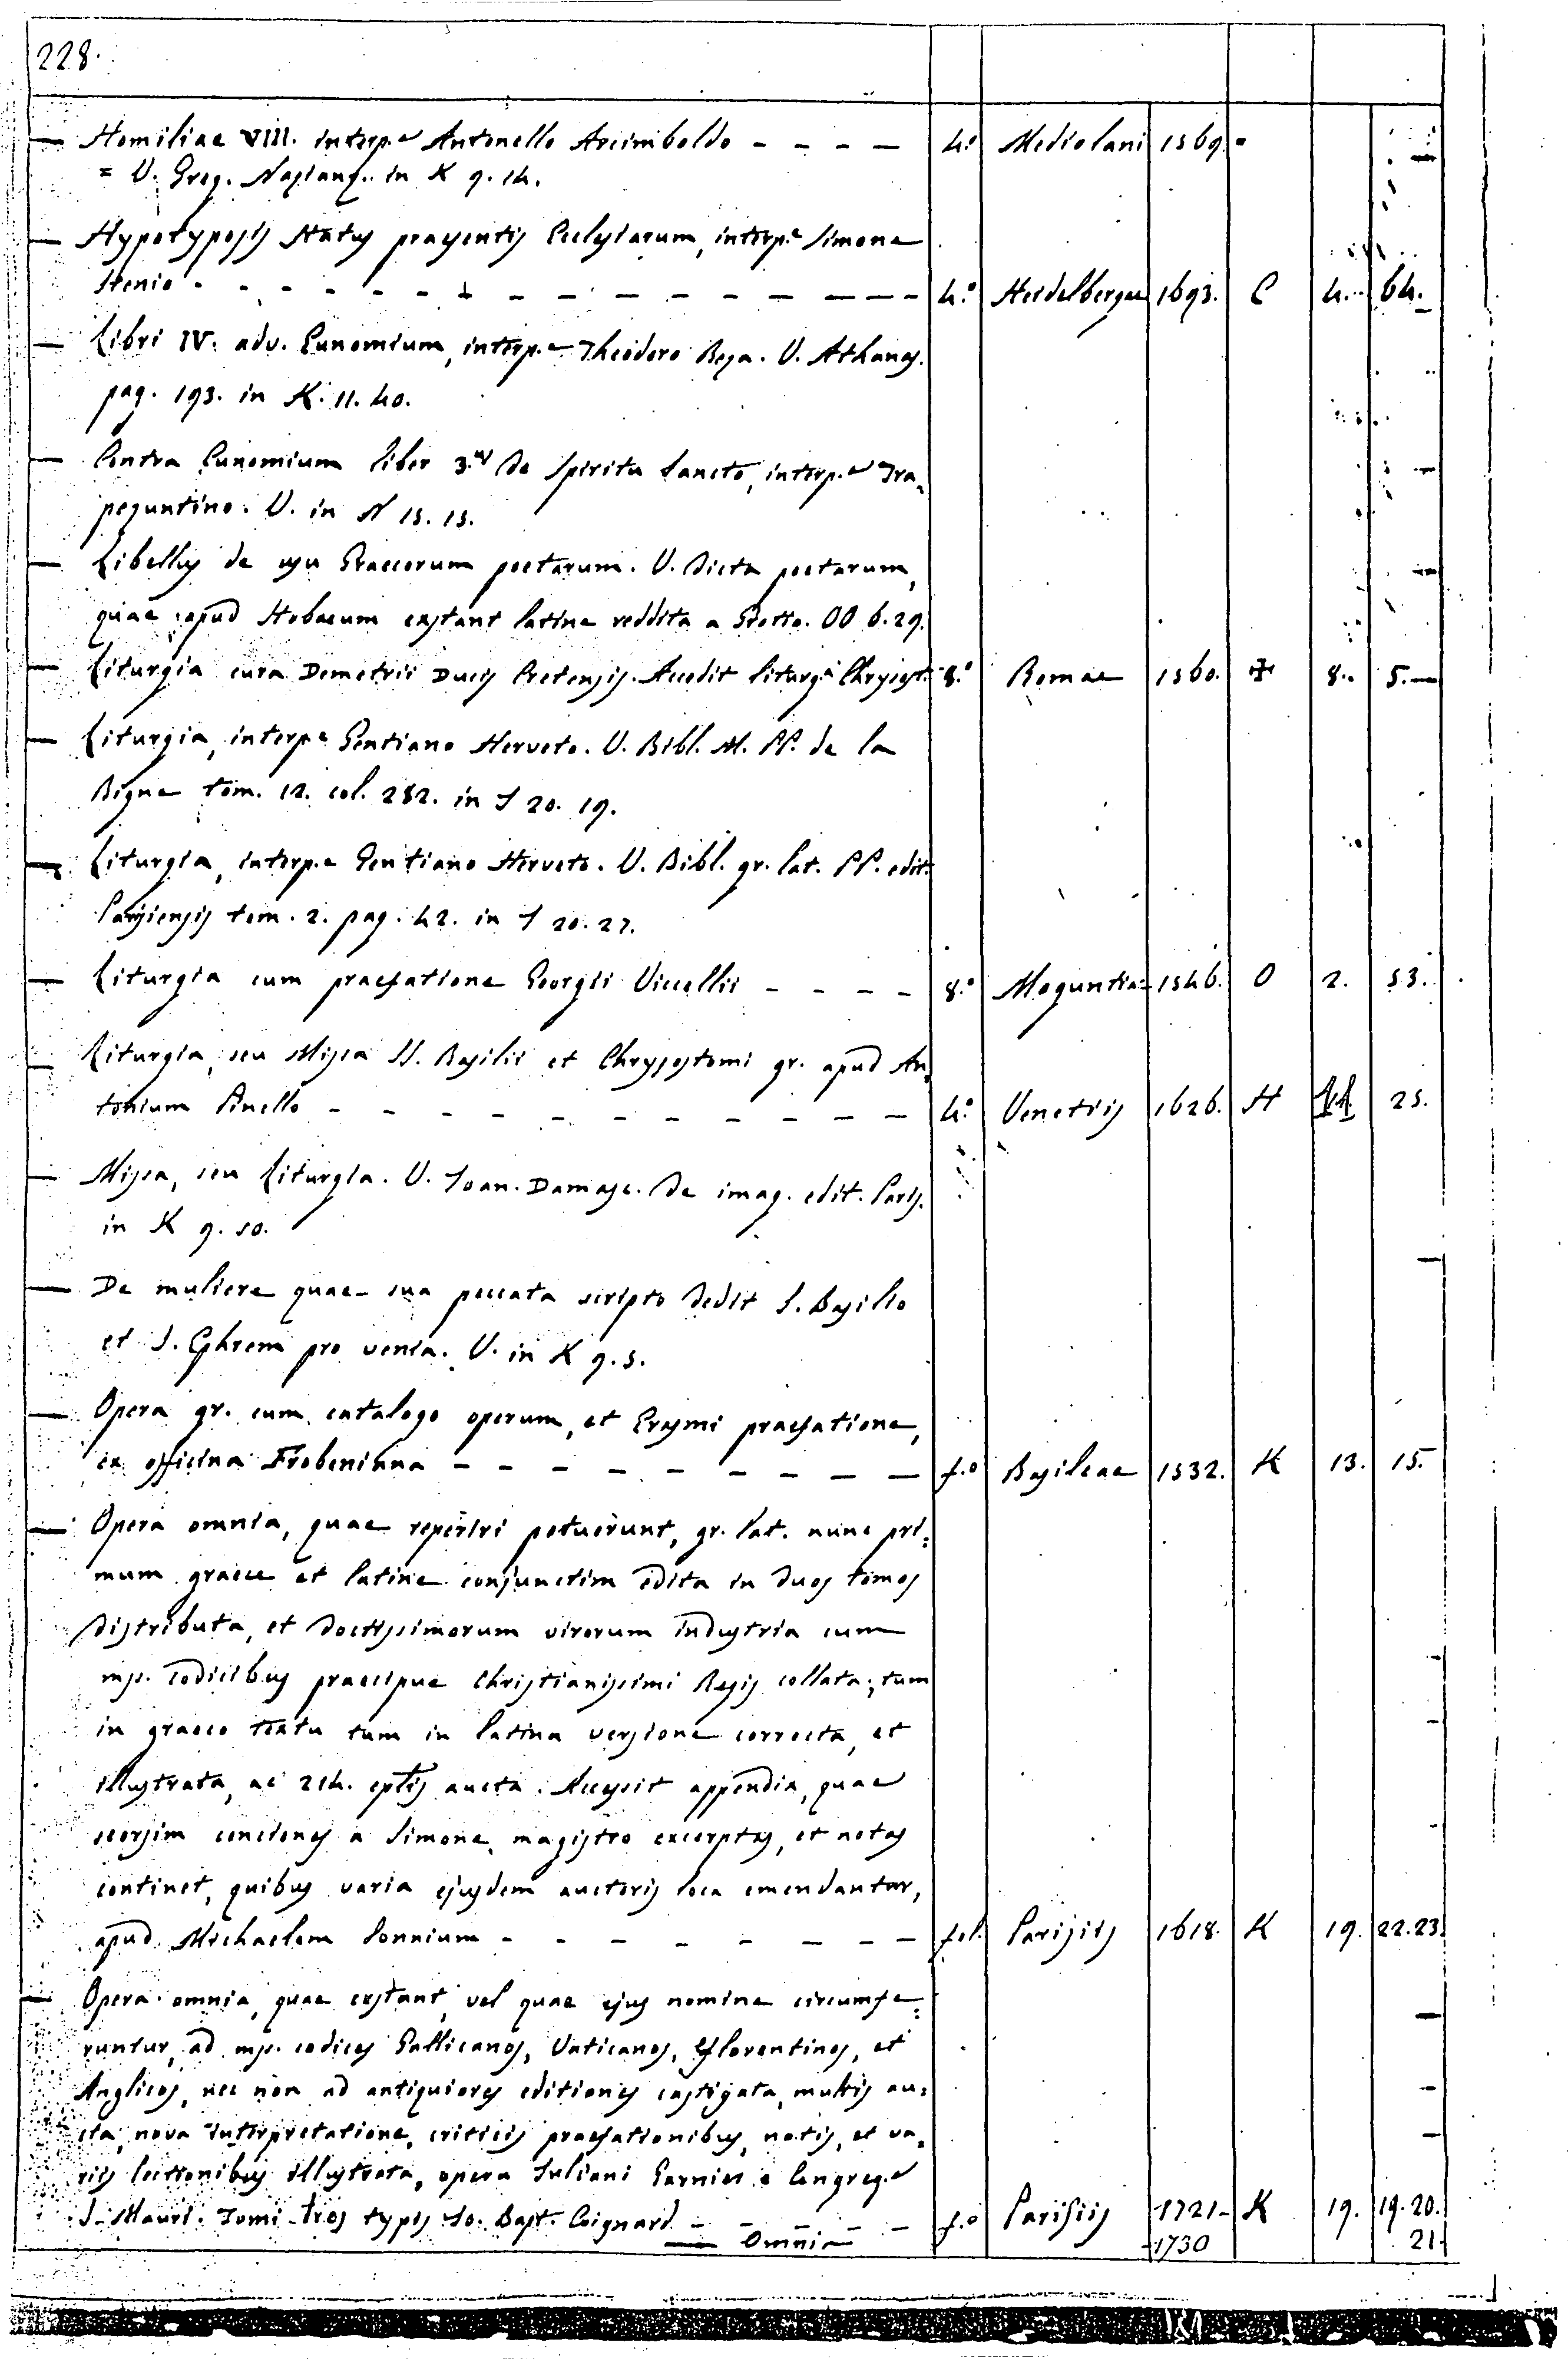 228.
— Homiliae VIII. interp.e Antonello Arcimboldo - - - — 4.o Mediolani 1569. =
= V. Greg. Nazianz. in K 9. 14.
— Hypotyposis status praesentis Ecclesiarum, interp.e Simone
Stenio - - - - - - - - - - - - - - 4.o Heidelbergae 1693. C 4. 64.
— Libri IV. adv. Eunomium, interp.e Theodoro Beza. V. Athanas.
pag. 193. in K. 11. 40.
— Contra Eunomium liber 3.us de Spiritu Sancto, interp.e Tra,
pezuntino. V. in N 15. 15.
— Libellus de usu Graecorum poetarum. V. Dicta poetarum,
quae apud Stobaeum exstant latine reddita a Grotio. OO 6. 29.
— Liturgia cura Demetrii Ducis Cretensis. Accedit liturg.a Chrysost. 8.o Romae 1560. ✠ 8. 5. —
— Liturgia, interp.e Gentiano Herveto. V. Bibl. M. PP. de la
Bigne tom. 12. col. 282. in S 20. 19.
— Liturgia, interp.e Gentiano Herveto. V. Bibl. gr. lat. PP. edit.
Parisiensis tom. 2. pag. 42. in S 20. 27.
— Liturgia cum praefatione Georgii Vicellii - - - - 8.o Moguntiae 1546. O 2. 53.
— Liturgia, seu Missa SS. Basilii et Chrysostomi gr. apud An,
tonium Pinello - - - - - - - - - - - 4.o Venetiis 1626. H 25.
— Missa, seu Liturgia. V. Joan. Damasc. de imag. edit. Paris.
in K 9. 50.
— De muliere quae sua peccata scripto dedit S. Basilio
et S. Ephrem pro venia. V. in K 9. 5.
— Opera gr. cum catalogo operum, et Erasmi praefatione,
ex officina Frobeniana - - - - - - - - — f.o Basileae 1532. K 13. 15.
— Opera omnia, quae reperiri potuerunt, gr. lat. nunc pri:
mum graece et latine conjunctim edita in duos tomos
distributa, et doctissimorum virorum industria cum
mss. codicibus praecipue Christianissimi Regis collata; tum
in graeco textu tum in latina versione correcta, et
illustrata, ac 214. eptis aucta. Accessit appendix, quae
seorsim conciones a Simone, magistro excerptas, et notas
continet, quibus varia ejusdem auctoris loca emendantur,
apud Michaelem Sonnium - - - - - - - — fol. Parisiis 1618. K 19. 22. 23.
— Opera omnia, quae exstant, vel quae ejus nomine circumfe:
runtur, ad mss. codices Gallicanos, Vaticanos, Florentinos, et
Anglicos, nec non ad antiquiores editiones castigata, multis au:
cta, nova interpretatione, criticis praefationibus, notis, et va,
riis lectionibus illustrata, opera Juliani Garnier e Congreg.e
S. Mauri. Tomi tres typis Jo. Bapt. Coignard - - - - — f.o Parisiis 1721- K 19. 19. 20.
— Omnia — -1730 21.